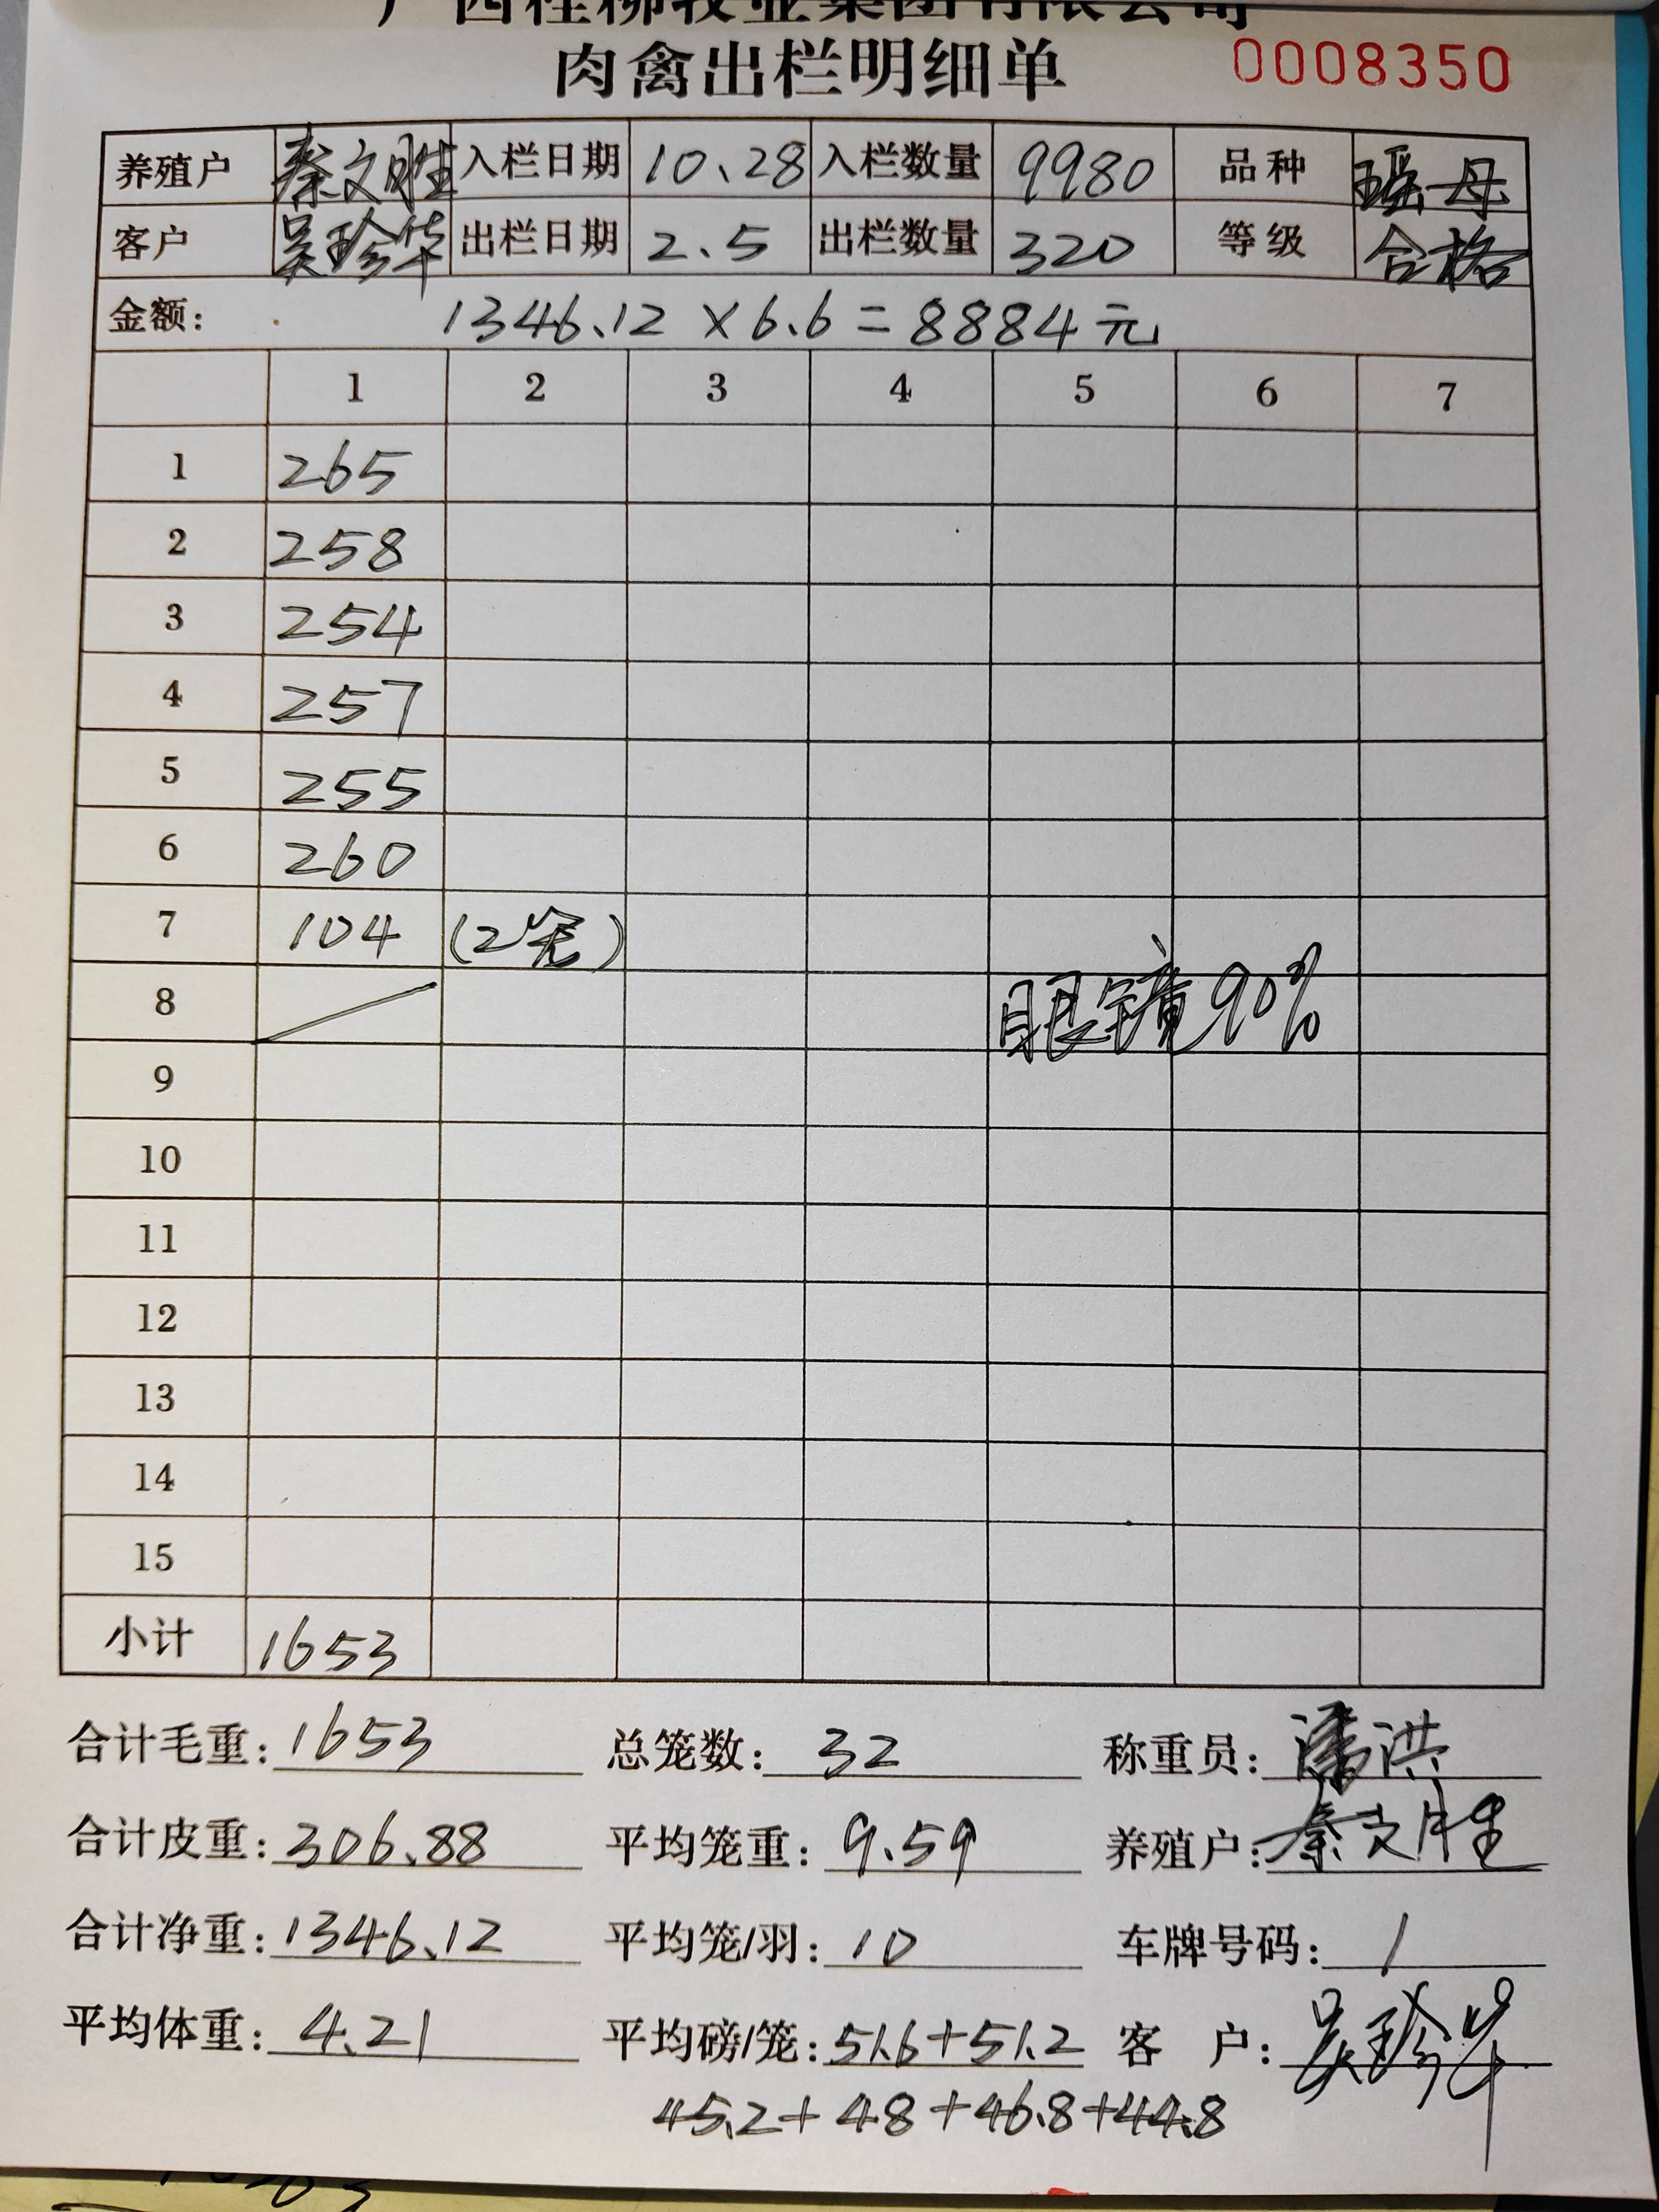 广西桂柳牧业集团有限公司
肉禽出栏明细单 0008350
养殖户 秦文胜 入栏日期 10.28 入栏数量 9980 品种 瑶母
客户 吴珍华 出栏日期 2.5 出栏数量 320 等级 合格
金额: 1346.12 × 6.6 = 8884元
1 2 3 4 5 6 7
1 265
2 258
3 254
4 257
5 255
6 260
7 104 (2笼)
8 眼镜90%
9
10
11
12
13
14
15
小计 1653
合计毛重: 1653 总笼数: 32 称重员: 潘洪
合计皮重: 306.88 平均笼重: 9.59 养殖户: 秦文胜
合计净重: 1346.12 平均笼/羽: 10 车牌号码: /
平均体重: 4.21 平均磅/笼: 51.6+51.2 客 户: 吴珍华
45.2+48+46.8+44.8